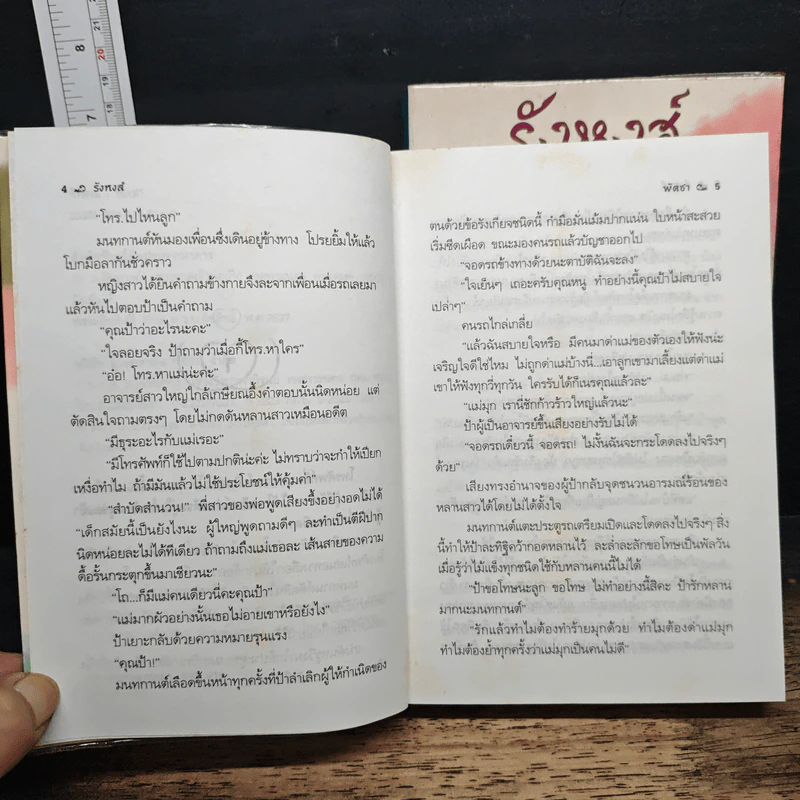 8
20
19
18
7
รังหงส์
4 รังหงส์
"โทร.ไปไหนลูก"
มนทกานต์หันมองเพื่อนซึ่งเดินอยู่ข้างทาง โปรยยิ้มให้แล้ว
โบกมือลากันชั่วคราว
หญิงสาวได้ยินคำถามข้างกายจึงละจากเพื่อนเมื่อรถเลยมา
แล้วหันไปตอบป้าเป็นคำถาม
"คุณป้าว่าอะไรนะคะ"
"ใจลอยจริง ป้าถามว่าเมื่อกี้โทร.หาใคร"
"อ๋อ! โทร.หาแม่น่ะค่ะ"
อาจารย์สาวใหญ่ใกล้เกษียณอึ้งคำตอบนั้นนิดหน่อย แต่
ตัดสินใจถามตรงๆ โดยไม่กดดันหลานสาวเหมือนอดีต
"มีธุระอะไรกับแม่เรอะ"
"มีโทรศัพท์ก็ใช้ไปตามปกติน่ะค่ะ ไม่ทราบว่าจะกำให้เปียก
เหงื่อทำไม ถ้ามีมันแล้วไม่ใช้ประโยชน์ให้คุ้มค่า"
"สำบัดสำนวน!" พี่สาวของพ่อพูดเสียงขึ้งอย่างอดไม่ได้
"เด็กสมัยนี้เป็นยังไงนะ ผู้ใหญ่พูดถามดีๆ ละทำเป็นตีฝีปาก
นิดหน่อยละไม่ได้ทีเดียว ถ้าถามถึงแม่เธอละ เส้นสายของความ
ดื้อรั้นกระตุกขึ้นมาเชียวนะ"
"โถ...ก็มีแม่คนเดียวนี่คะคุณป้า"
"แม่มากผัวอย่างนั้นเธอไม่อายเขาหรือยังไง"
ป้าเยาะกลับด้วยความหมายรุนแรง
"คุณป้า!"
มนทกานต์เลือดขึ้นหน้าทุกครั้งที่ป้าลำเลิกผู้ให้กำเนิดของ
พัดชา 5
ตนด้วยข้อรังเกียจชนิดนี้ กำมือมั่นเม้มปากแน่น ใบหน้าสะสวย
เริ่มซีดเผือด ขณะมองคนรถแล้วบัญชาออกไป
"จอดรถข้างทางด้วยนะตาบัติฉันจะลง"
"ใจเย็นๆ เถอะครับคุณหนู ทำอย่างนี้คุณป้าไม่สบายใจ
เปล่าๆ"
คนรถไกล่เกลี่ย
"แล้วฉันสบายใจหรือ มีคนมาด่าแม่ของตัวเองให้ฟังน่ะ
เจริญใจดีใช่ไหม ไม่ถูกด่าแม่บ้างนี่...เอาลูกเขามาเลี้ยงแต่ด่าแม่
เขาให้ฟังทุกวี่ทุกวัน ใครรับได้ก็เนรคุณแล้วละ"
"แม่มุก เรานี่ชักก้าวร้าวใหญ่แล้วนะ"
ป้าผู้เป็นอาจารย์ขึ้นเสียงอย่างรับไม่ได้
"จอดรถเดี๋ยวนี้ จอดรถ! ไม่งั้นฉันจะกระโดดลงไปจริงๆ
ด้วย"
เสียงทรงอำนาจของผู้ป้ากลับจุดชนวนอารมณ์ร้อนของ
หลานสาวได้โดยไม่ได้ตั้งใจ
มนทกานต์แตะประตูรถเตรียมเปิดและโดดลงไปจริงๆ สิ่ง
นี้ทำให้ป้าละทิฐิคว้ากอดหลานไว้ ละล่ำละลักขอโทษเป็นพัลวัน
เมื่อรู้ว่าไม้แข็งทุกชนิดใช้กับหลานคนนี้ไม่ได้
"ป้าขอโทษนะลูก ขอโทษ ไม่ทำอย่างนี้สิคะ ป้ารักหลาน
มากนะมนทกานต์"
"รักแล้วทำไมต้องทำร้ายมุกด้วย ทำไมต้องด่าแม่มุก
ทำไมต้องย้ำทุกครั้งว่าแม่มุกเป็นคนไม่ดี"